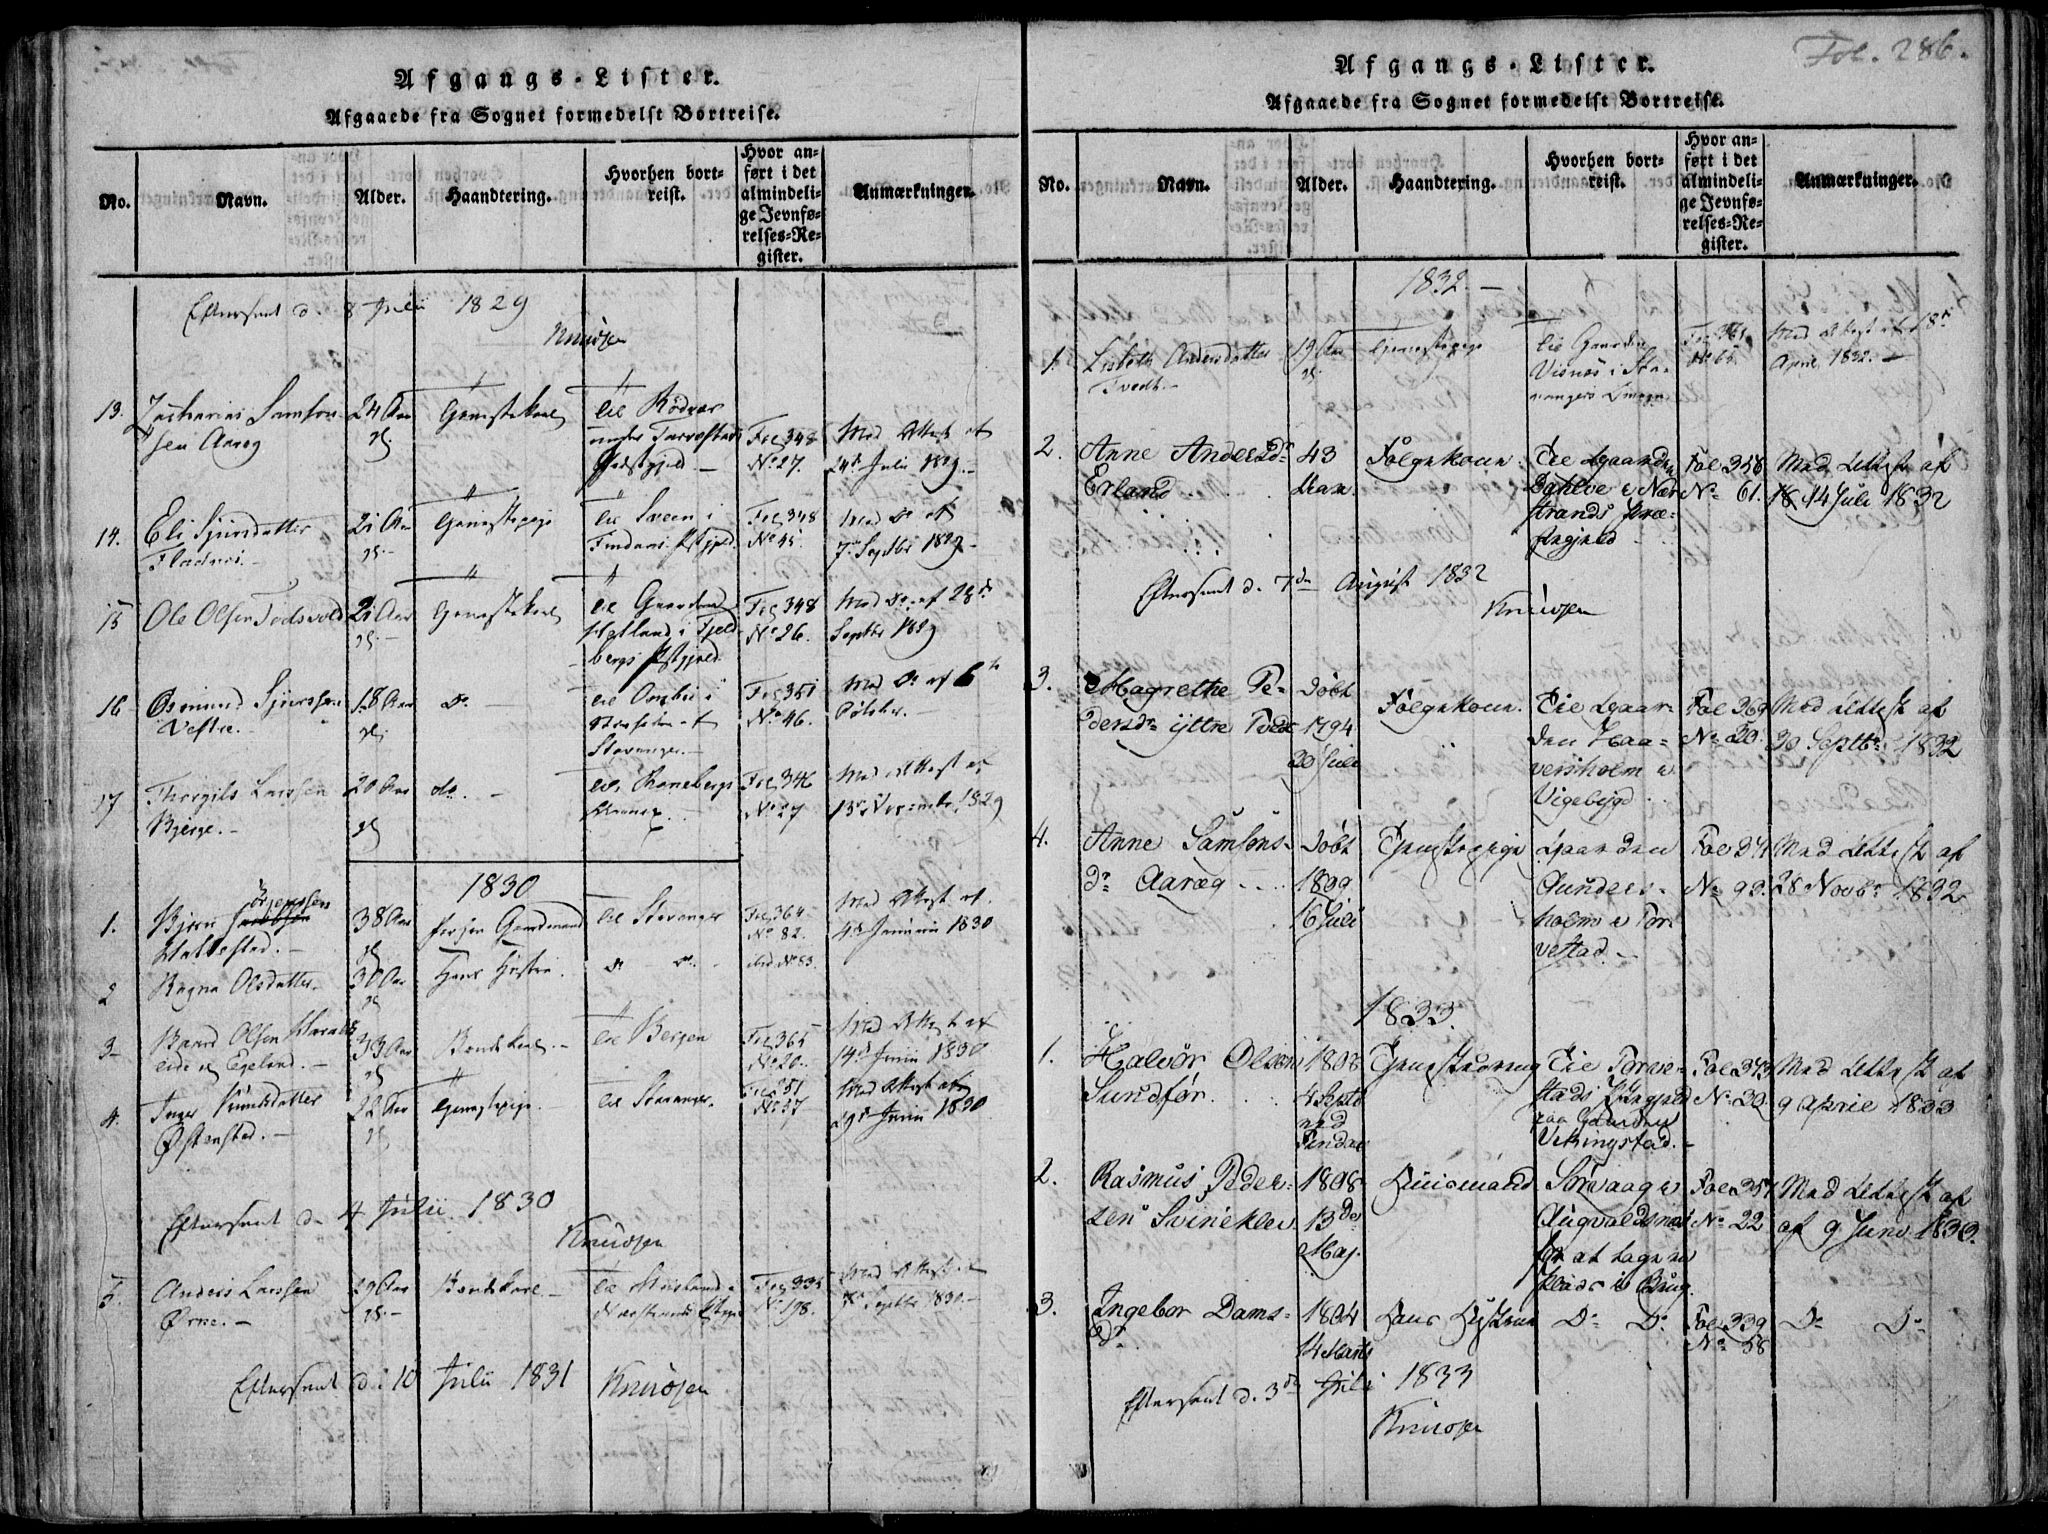 Afgangs-Lister.
Afgaaede fra Sognet formedelst Bortreise.
No.
Navn.
Alder.
Haandtering.
Hvorhen bort-
reist.
Hvor an-
ført i det
almindeli-
ge Jevnfø-
relses-Re-
gister.
Anmærkninger.
Efterseet d. 8 Julii 1829
Knudsen
13.
Zacharias Samson-
sen Aaræg
24 Aar
gl.
Tjenestekarl
til Rødvær
under Torvestads
Præstgjeld. –
Fol 348
No 27.
Med Attest af
24de Julii 1829. –
14.
Eli Sjursdatter
Fladnæs. –
21 Aar
gl. –
Tjenestepige
til Sveen i
Findaas Pstgjeld.
Fol 348
No 45.
Med Do af
7de Septbr 1829 –
15
Ole Olsen Todsvold
21 Aar
gl. –
Tjenestekarl
til Gaarden
Hetland i Fjeld-
bergs Pstgjeld.
Fol 348
No 26.
Med Do af 28de
Septbr 1829
16
Asmund Sjursen
Vestre. –
18 Aar
gl.
do. –
til Ombo i
Stavanger. –
Fol 351
No 46.
Med Do af 6te
Octobr. –
17
Thorgils Larsen
Bjerge. –
20 Aar
gl
do. –
til Rønebergs
Fol 346
No 27
Med Attest af
13de Novembr. 1829
1830
1.
Bjørn
Ørjensen
Hallestad. –
38 Aar
gl
forhen Gaardmand
til Stavanger
Fol 364
No 82.
Med Attest af
4de Januarii 1830
2
Ragna Olsdatter.
30 Aar
gl
Hans Hustru.
do do.
ibid. No 83.
3-
Baard Olsen Haralds
eide og Egeland. –
33 Aar
gl
Bondekarl. –
til Bergen
Fol 365
No 20.
Med Attest af
14de Junii 1830
4.
Inger Knudsdatter
Østenstad. –
22 Aar
gl
Tjenestepige.
til Stavanger.
Fol 351
No 37
Med Attest af
29de Junii 1830
Efterseet d. 4 Julii 1830
Knudsen
5.
Anders Larsen
Ørne. –
29 Aar
gl. –
Bondekarl –
til Huusland i
Nærstrands Pstgj
Fol 335
No 198.
Med Attest af
Septbr 1830. –
Eftersect d: 10 Julii 1831 Knudsen
Fol. 286.
Afgangs-Lister.
Afgaaede fra Sognet formedelst Bortreise.
No.
Navn.
Alder.
Haandtering.
Hvorhen bort-
reist.
Hvor an-
ført i det
almindeli-
ge Jevnfø-
relses-Re-
gister.
Anmærkninger.
1832. –
1.
Lisbeth Andersdatter
Tvedt. –
19 Aar
gl.
Tjenestepige
til Gaarden
Visnæs i Sta-
vangers Omegn
Fol 361
No 66.
Med Attest af 18de
April 1832. –
2.
Anne Andersdr
Erland . .
43
Aar.
Følgekone.
Til Gaarden
Dahlve i Nær-
strands Præ-
stegjeld
Fol 358
No 61.
Med Attest af
14 Juli 1832
Eftersect d. 7de August 1832
Knudsen
3.
Magrethe Pe-
dersdr yttre Tvedt
Døbt
1794
20 Juli
Følgekone.
Til Gaar-
den Haa-
versholm i
Vigebygd
Fol 369
No 30.
Med Attest af
30 Septbr 1832
4.
Anne Samsons-
dr Aaræg . . .
Døbt
1809
16 Juli
Tjenstepige
Gaarden
Gunders-
holm i Tor-
vestad. –
Fol 371
No 93.
Med Attest af
28 Novbr 1832
1833.
1.
Halvor Olsen
Sundfør. . .
1808
4 Septb
ved
Findaas
Tjenstdreng
Til Torve-
stads Prgjeld
paa Gaarden
Vikingstad. –
Fol 373
No 30.
Med Attest af
9 April 1833
2.
Rasmus Peder-
sen Svinekley
1808
13de
Maj.
Huusmand
Sørvaag i
Augvaldsnæs
for at tage en
Plads i Brug.
Fol 357
No 22
Med Attest af
af 9 Juni 1833.
3.
Ingebor Dams-
dr
1804
14 Marts
Hans Hustrue
Do Do
Fol 339
No 58
Do Do
Eftersect d. 3de Juli 1833
Knudsen